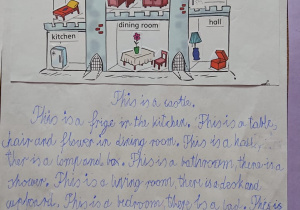 dining room
hall
kitchen
This is a castle.
This is a frige in the kitchen. This is a table,
chair and flower in dining room. This is a hall,
ther is lamp and box. This is a bathroom, there is a
shower. This is a living room, there is desk and
cupboard. This is a bedroom, there is a bed. This is